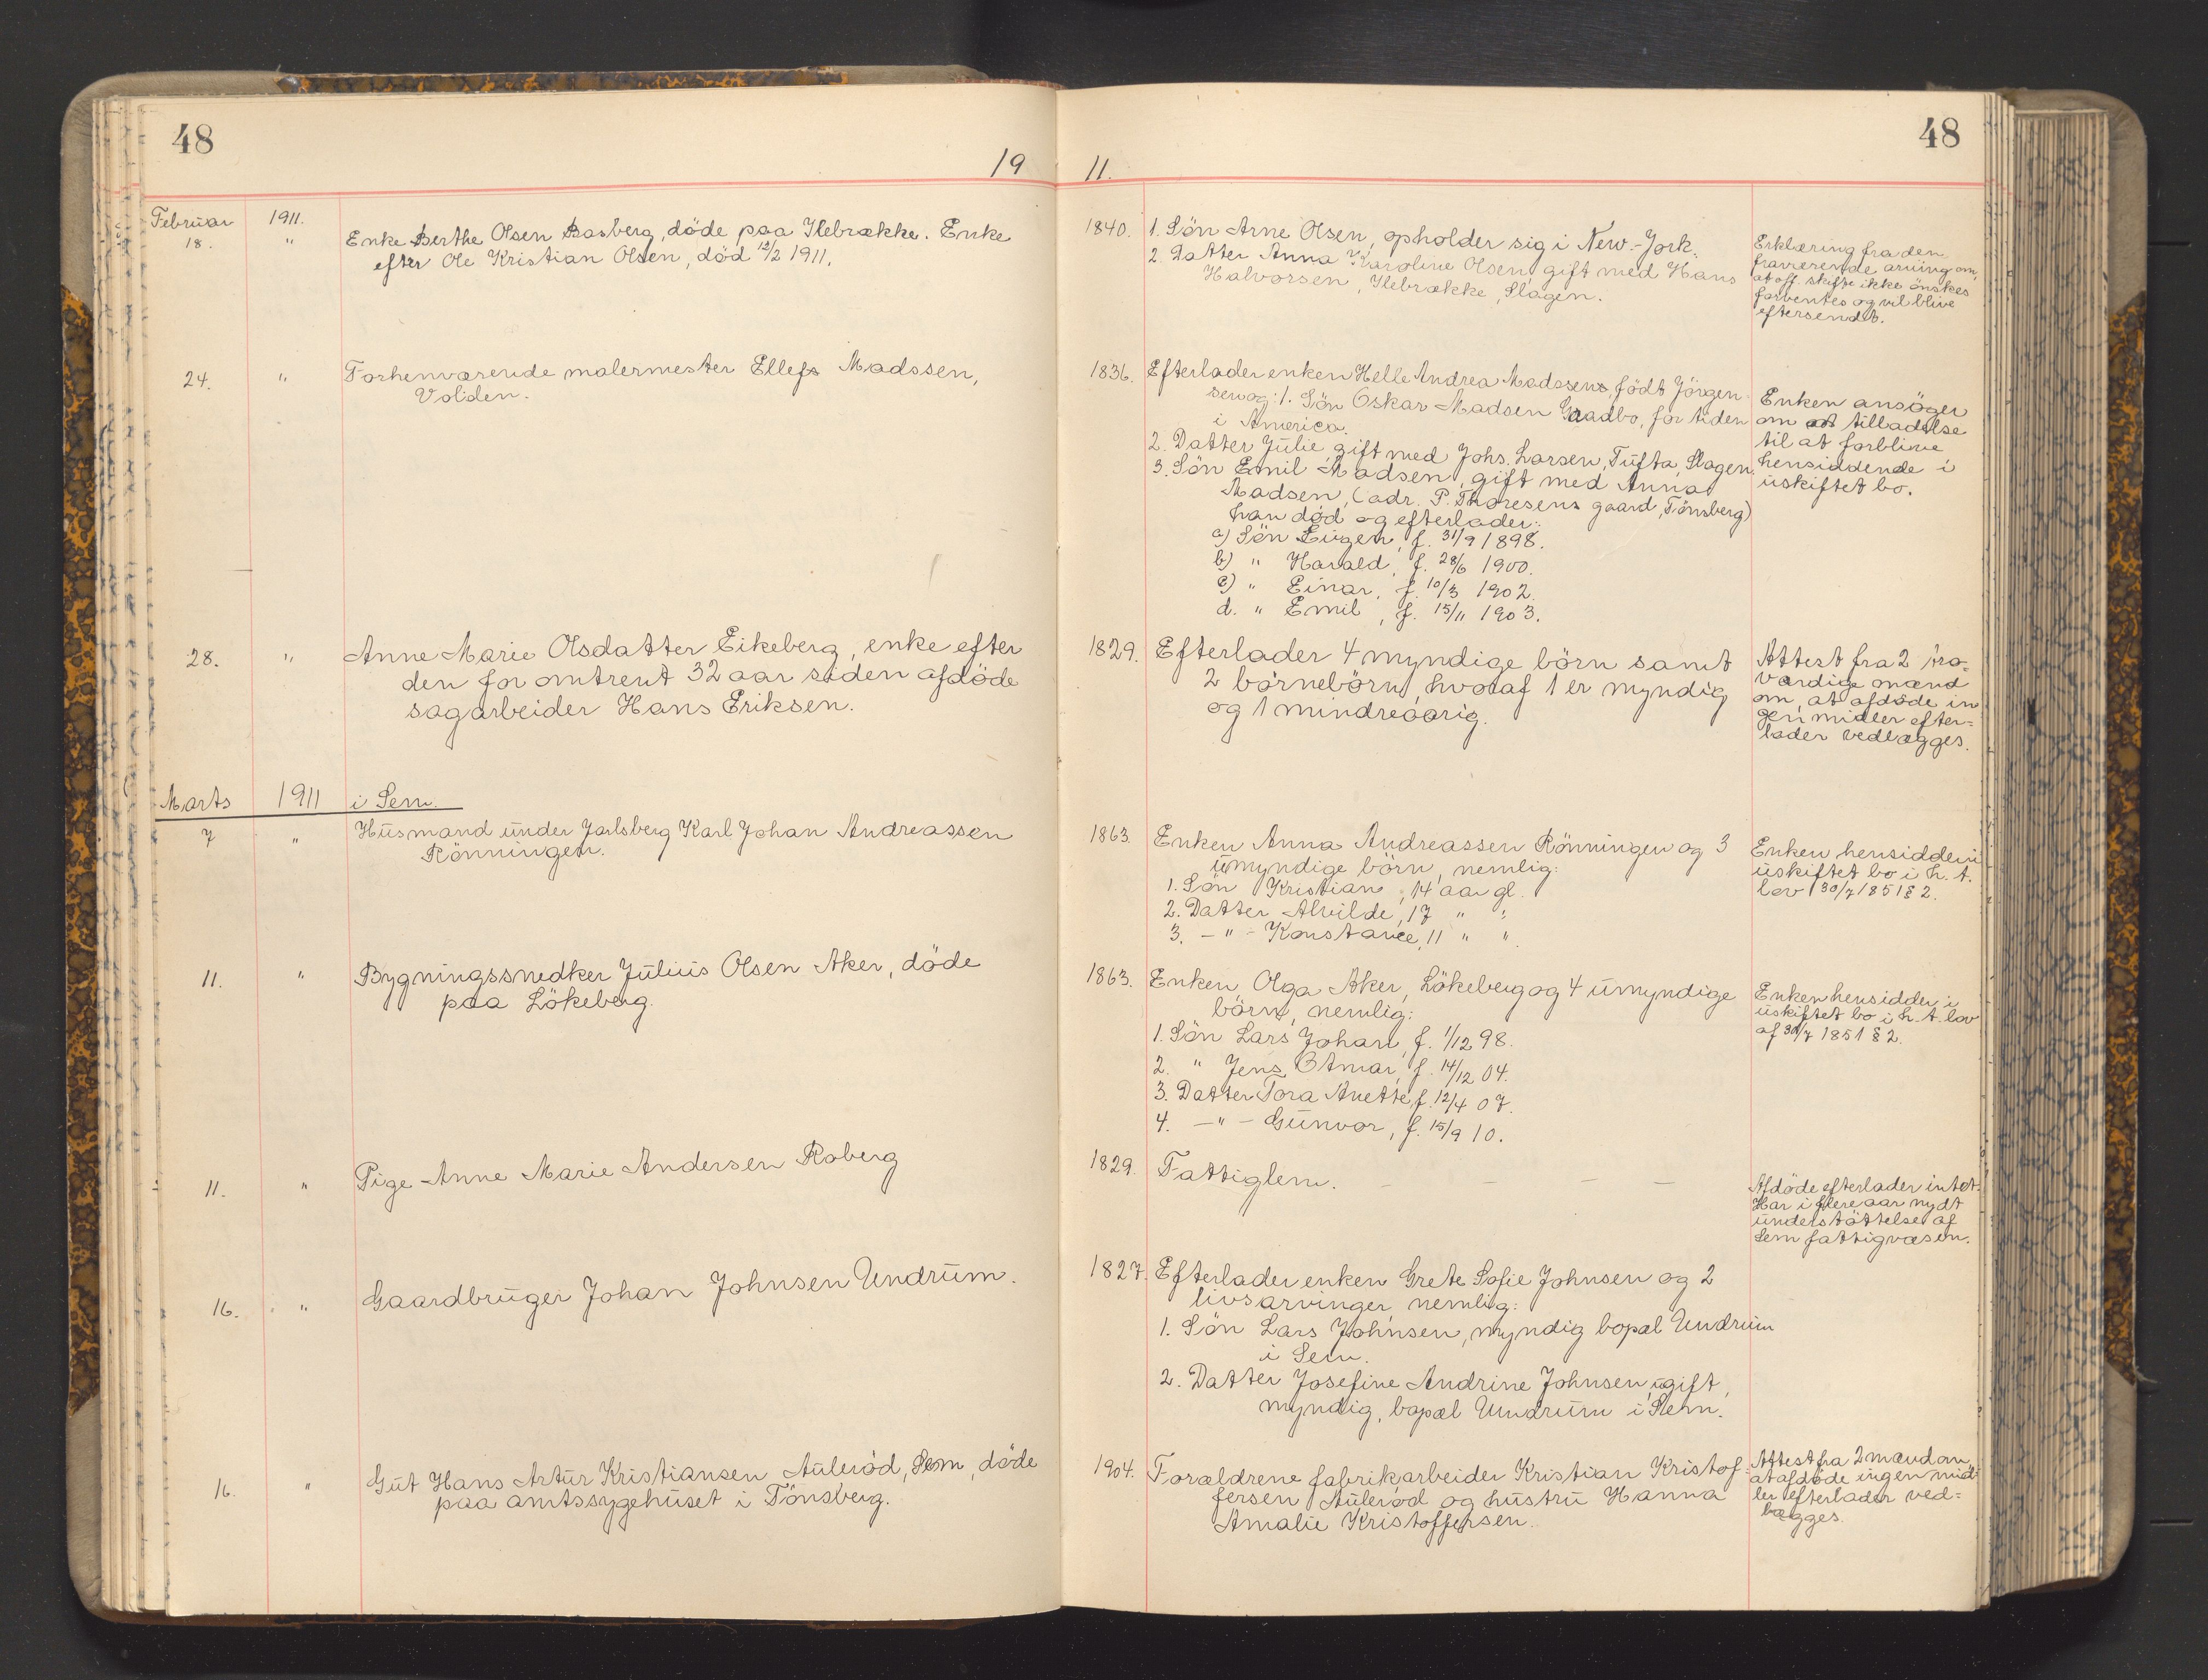 48
48
19 11.
Februar 1911.
18. " Enke Berthe Olsen Basberg, döde paa Ilebrække. Enke
efter Ole Kristian Olsen, död 12/2 1911.
1840. 1. Sön Arne Olsen, opholder sig i New-York.
2. Datter Anna Karoline Olsen, gift med Hans
Halvorsen, Ilebrække, Slagen.
Erklæring fra den
fraværende arving om,
at off. skifte ikke önskes
forventes og vil blive
eftersendt.
24. " Forhenværende malermester Ellefs Madssen,
Volden.
1836. Efterlader enken Helle Andrea Madssens, födt Jörgen
sen og: 1. Sön Oskar Madsen Gaadbo, for tiden
i America.
2. Datter Julie, gift med Johs. Larsen, Tufta, Slagen.
3. Sön Emil Madsen, gift med Anna
Madsen, (adr. P. Thoresens gaard, Tönsberg)
han död og efterlader:
a) Sön Eugen, f. 31/9 1898.
b) " Harald, f. 28/6 1900.
c) " Einar, f. 10/3 1902.
d. " Emil, f. 15/11 1903.
Enken ansöger
om tilladelse
til at forblive
hensiddende i
uskiftet bo.
28. " Anne Marie Olsdatter Eikeberg, enke efter
den for omtrent 32 aar siden afdöde
sagarbeider Hans Eriksen.
1829. Efterlader 4 myndige börn samt
2 börnebörn, hvoraf 1 er myndig
og 1 mindreaarig.
Attest fra 2 tro-
værdige mænd
om, at afdöde in
gen midler efter-
lader vedlægges.
Marts 1911 i Sem.
7 " Husmand under Jarlsberg Karl Johan Andreassen
Rönningen.
1863. Enken Anna Andreassen Rönningen og 3
umyndige börn, nemlig:
1. Sön Kristian, 14 aar gl.
2. Datter Alvilde, 17 " "
3. -"- Konstance, 11 " "
Enken hensidder i
uskiftet bo i h. t.
lov 30/7 1851 § 2.
11. " Bygningssnedker Julius Olsen Aker, döde
paa Lökeberg.
1863. Enken Olga Aker, Lökeberg og 4 umyndige
börn, nemlig:
1. Sön Lars Johan, f. 1/12 98.
2. " Jens Otmar, f. 14/12 04.
3. Datter Tora Anette, f. 12/4 07.
4. -"- Gunvor, f. 15/9 10.
Enken hensidder i
uskiftet bo i h. t. lov
af 30/7 1851 § 2.
11. " Pige Anne Marie Andersen Roberg
1829. Fattiglem. - - -
Afdöde efterlader intet.
Har i flere aar nydt
understöttelse af
Sem fattigvæsen.
16. " Gaardbruger Johan Johnsen Undrum.
1827. Efterlader enken Grete Sofie Johnsen og 2
livsarvinger, nemlig:
1. Sön Lars Johnsen, myndig bopæl Undrum
i Sem.
2. Datter Josefine Andrine Johnsen, ugift,
myndig, bopæl Undrum i Sem.
16. " Gut Hans Artur Kristiansen Aulerød, Sem, döde
paa amtssygehuset i Tönsberg.
1904. Forældrene fabrikarbeider Kristian Kristof-
fersen Aulerød og hustru Hanna
Amalie Kristoffersen.
Attest fra 2 mænd om
at afdøde ingen mid-
ler efterlader ved-
lægges.